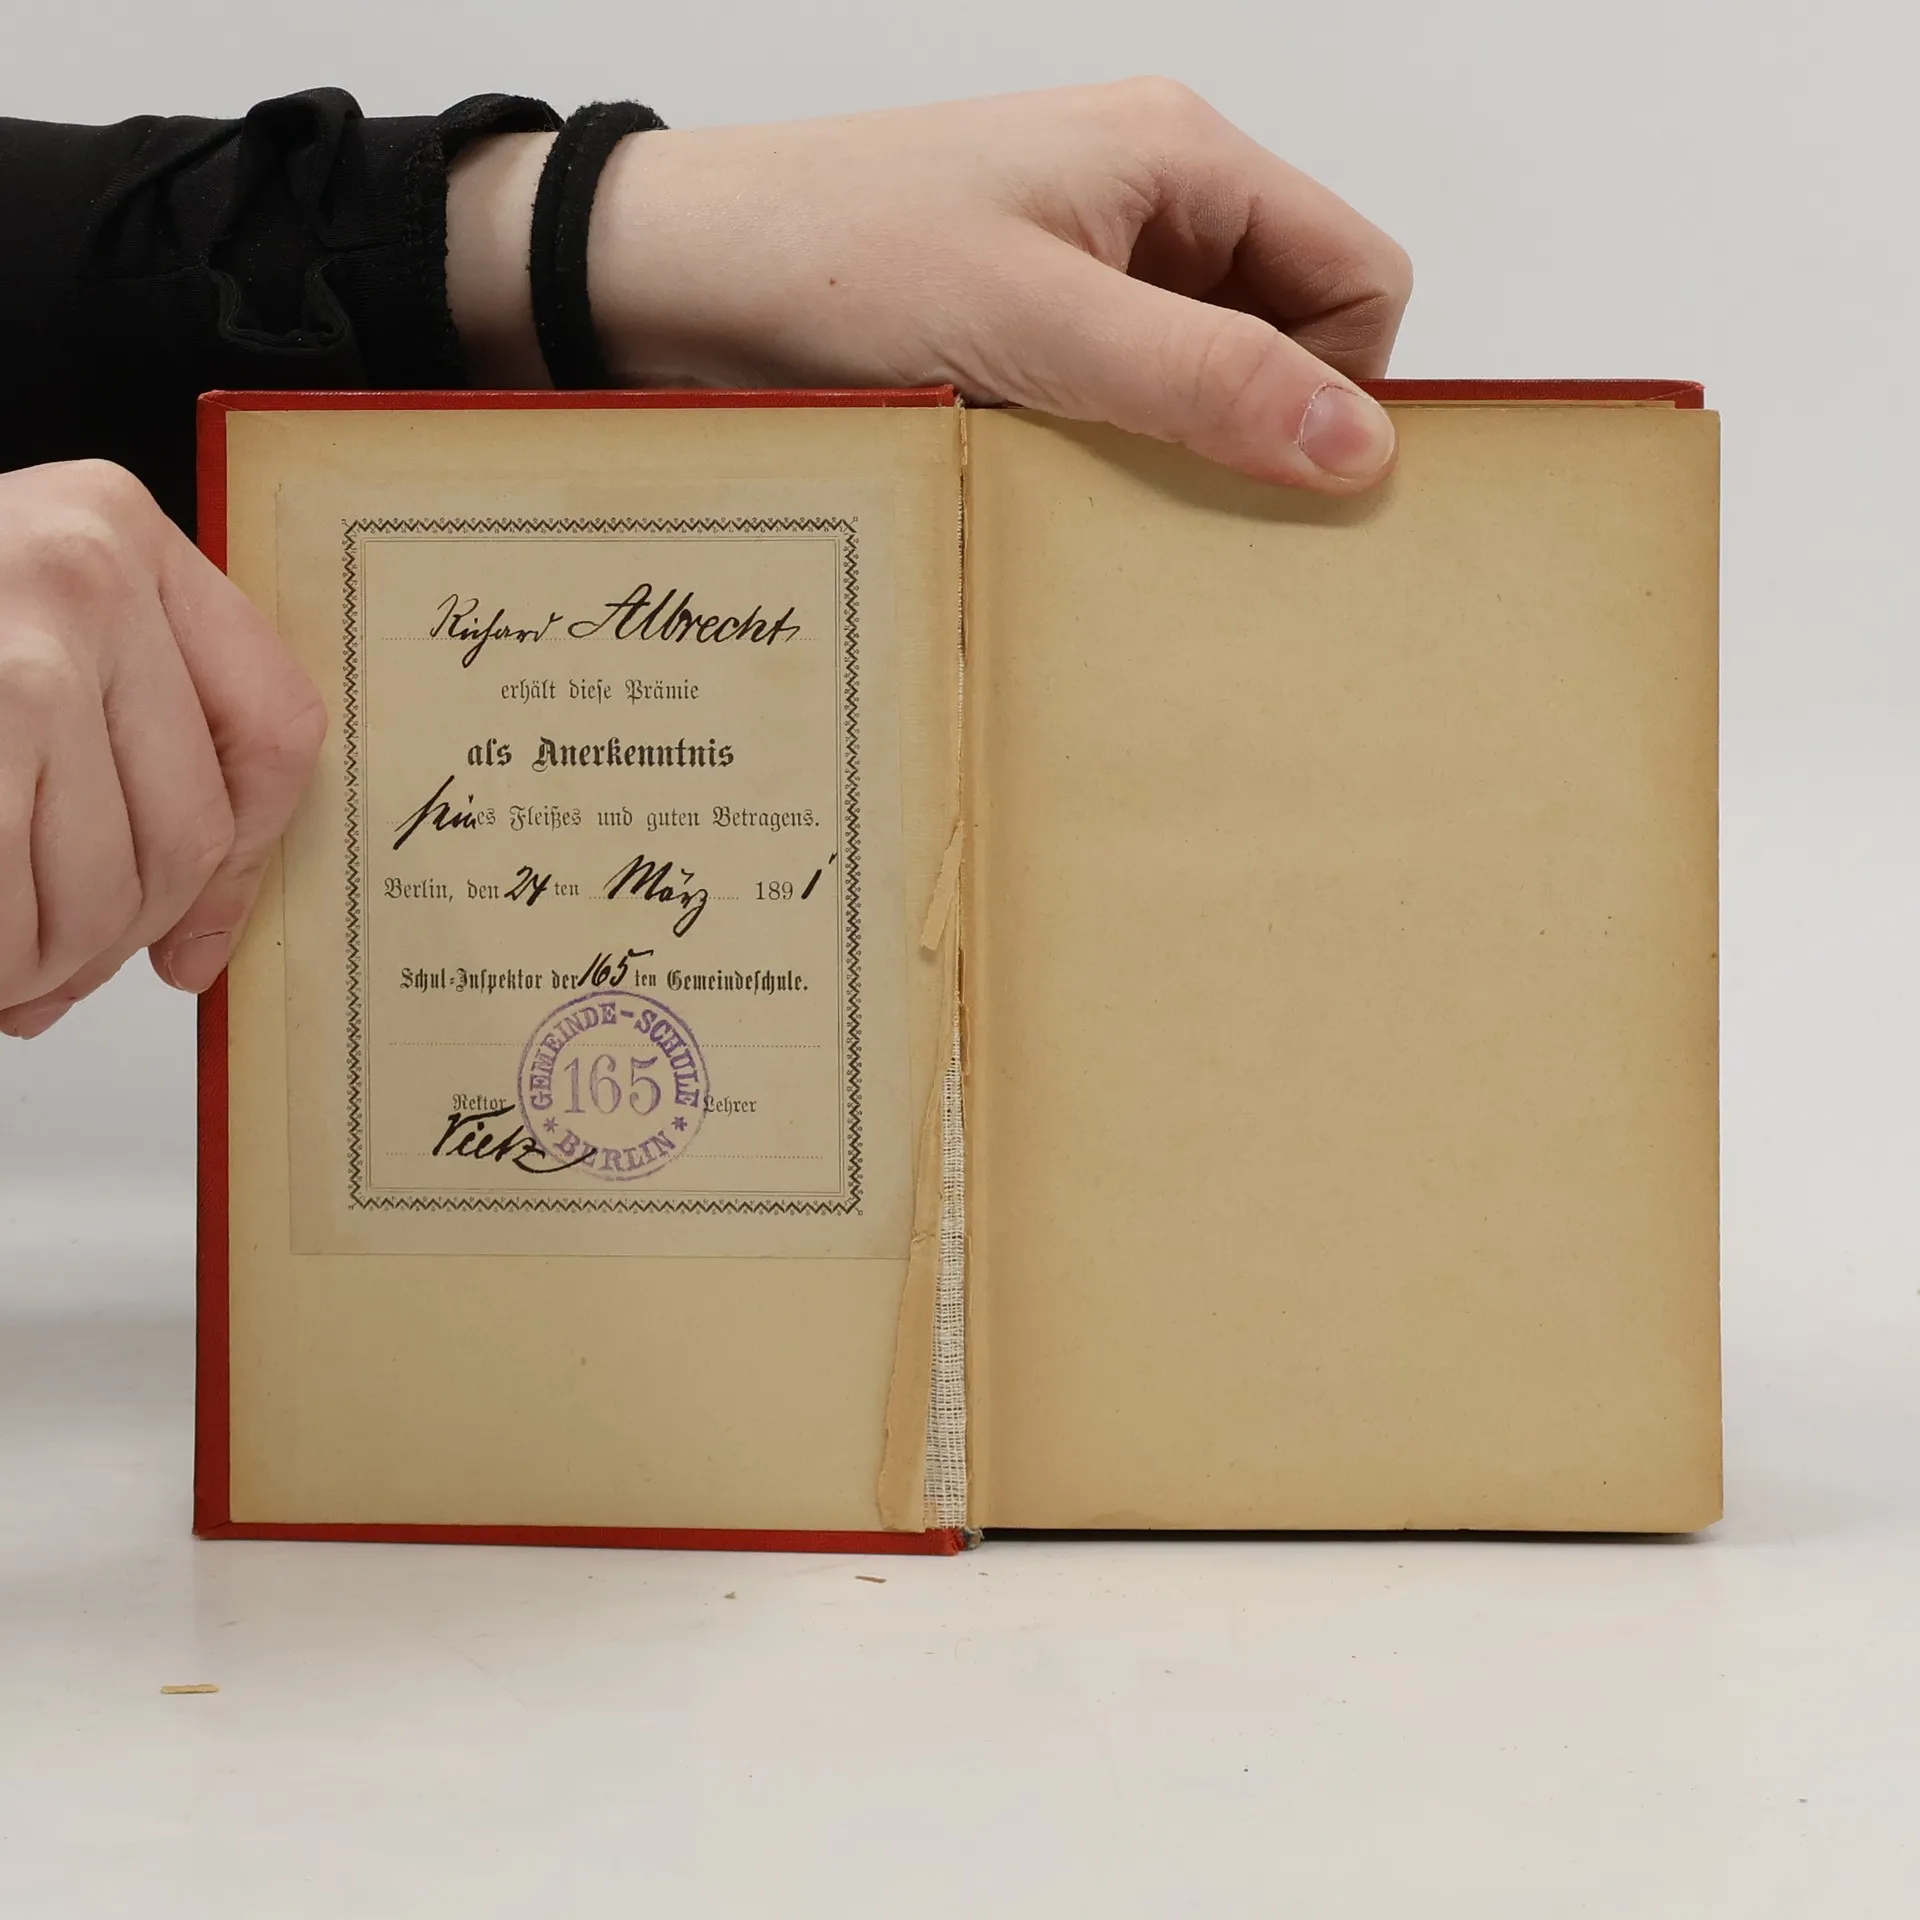 Richard Albrecht
erhält diese Prämie
als Anerkenntnis
seines Fleißes und guten Betragens.
Berlin, den 24ten März 1891
Schul-Inspektor der 165ten Gemeindeschule.
GEMEINDE-SCHULE
165
* BERLIN *
Rektor Lehrer
Vietz